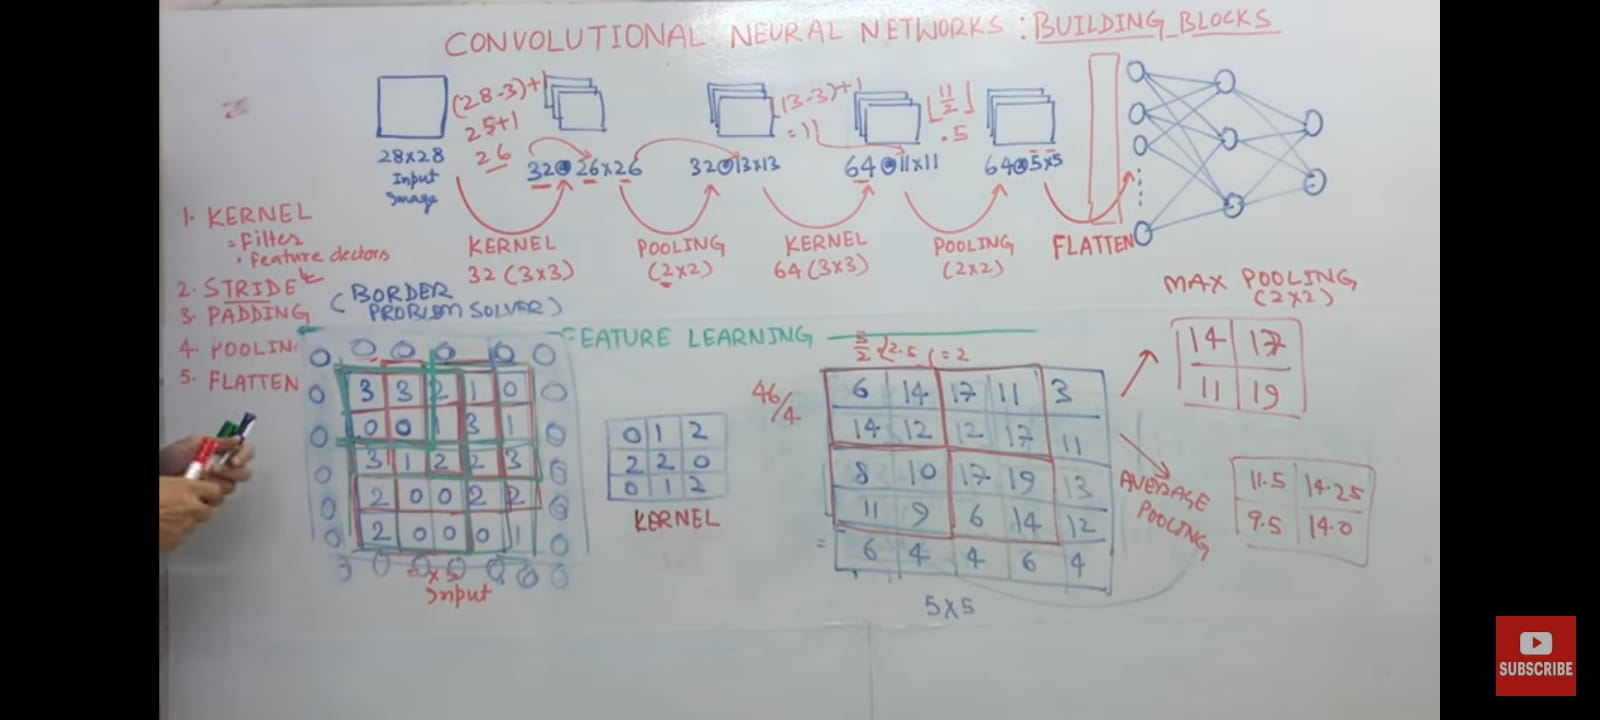 CONVOLUTIONAL NEURAL NETWORKS : BUILDING BLOCKS
(28-3)+1
25+1
26
28x28
Input
Image
32@26x26
32@13x13
(13-3)+1
=11
64@11x11
⌊11/2⌋
.5
64@5x5
KERNEL
32 (3x3)
POOLING
(2x2)
KERNEL
64 (3x3)
POOLING
(2x2)
FLATTEN
1. KERNEL
= Filter
. Feature dectors
2. STRIDE
3. PADDING
(BORDER
PROBLEM SOLVER)
4. POOLIN
5. FLATTEN
FEATURE LEARNING
0 0 0 0 0 0
0 3 3 2 1 0 0
0 0 0 1 3 1 0
0 3 1 2 2 3 0
0 2 0 0 2 2 0
0 2 0 0 0 1 0
Input
0 1 2
2 2 0
0 1 2
KERNEL
46/4
2.5 = 2
6 14 17 11 3
14 12 12 17 11
8 10 17 19 13
11 9 6 14 12
6 4 4 6 4
5x5
MAX POOLING
(2x2)
14 17
11 19
AVERAGE
POOLING
11.5 14.25
9.5 14.0
SUBSCRIBE